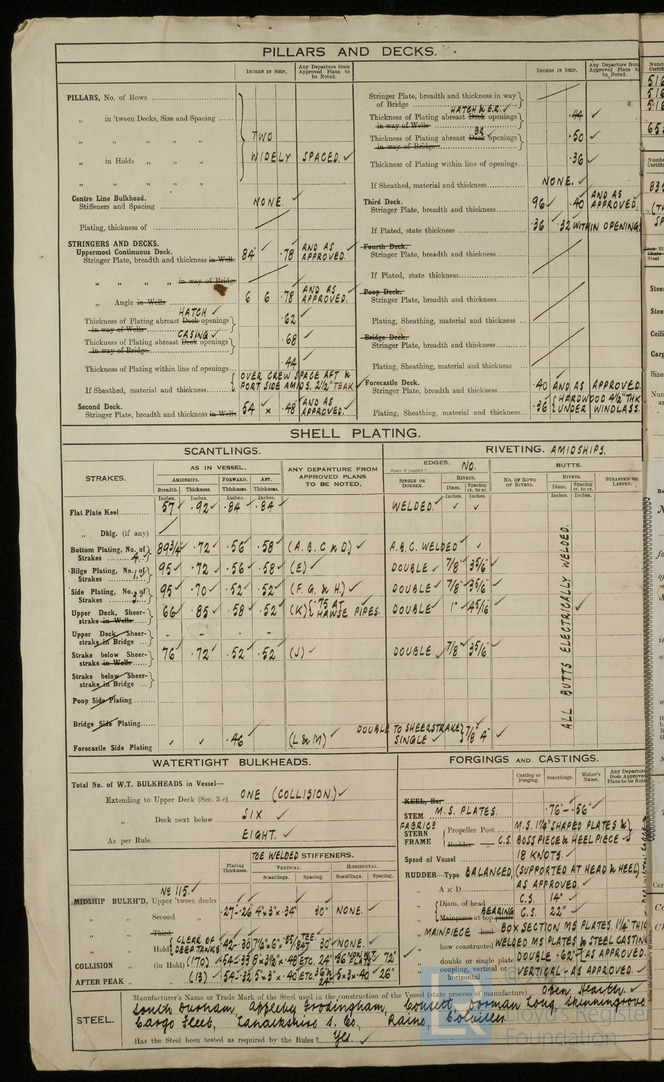 PILLARS AND DECKS.
INCHES IN SHIP. Any Departure from Approved Plans to be Noted.
PILLARS, No. of Rows
„ in 'tween Decks, Size and Spacing
„ „ „ „ „ TWO
„ in Holds „ „ WIDELY SPACED. ✓
„ „ „ „
Centre Line Bulkhead.
Stiffeners and Spacing NONE. ✓
Plating, thickness of
STRINGERS AND DECKS.
Uppermost Continuous Deck.
Stringer Plate, breadth and thickness in Wells 84 ✓ .78 AND AS APPROVED.
„ „ „ „ in way of Bridge
„ Angle in Wells 6 6 .78 AND AS APPROVED.
HATCH ✓
Thickness of Plating abreast Deck openings in way of Wells .62 ✓
CASING ✓
Thickness of Plating abreast Deck openings in way of Bridge .68 ✓
Thickness of Plating within line of openings .44 ✓
If Sheathed, material and thickness OVER CREW SPACE AFT & PORT SIDE AMIDS. 2½" TEAK
Second Deck.
Stringer Plate, breadth and thickness in Wells 54 × .48 AND AS APPROVED.
INCHES IN SHIP. Any Departure from Approved Plans to be Noted.
Stringer Plate, breadth and thickness in way of Bridge
HATCH & E.R. ✓
Thickness of Plating abreast Deck openings in way of Wells .44 ✓
Thickness of Plating abreast Deck openings in way of Bridge .50 ✓
Thickness of Plating within line of openings .36 ✓
If Sheathed, material and thickness NONE. ✓
Third Deck.
Stringer Plate, breadth and thickness 96 ✓ .40 AND AS APPROVED.
If Plated, state thickness .36 .32 WITHIN OPENING
Fourth Deck.
Stringer Plate, breadth and thickness
If Plated, state thickness
Poop Deck.
Stringer Plate, breadth and thickness
Plating, Sheathing, material and thickness
Bridge Deck.
Stringer Plate, breadth and thickness
Plating, Sheathing, material and thickness
Forecastle Deck.
Stringer Plate, breadth and thickness .40 AND AS APPROVED.
Plating, Sheathing, material and thickness .36 HARDWOOD 4½" THK UNDER WINDLASS.
SHELL PLATING.
SCANTLINGS.
RIVETING. AMIDSHIPS.
STRAKES. AS IN VESSEL. ANY DEPARTURE FROM APPROVED PLANS TO BE NOTED.
AMIDSHIPS. FORWARD. AFT.
Breadth. Thickness. Thickness. Thickness.
Inches. Inches. Inches. Inches.
EDGES. NO. BUTTS.
SINGLE OR DOUBLE. RIVETS. Diam. Spacing cr. to cr. NO. OF ROWS OF RIVETS. RIVETS. Diam. Spacing cr. to cr. STRAPPED OR LAPPED.
Flat Plate Keel 57 ✓ .92 ✓ .84 ✓ .84 ✓ WELDED. ✓ ✓
„ Dblg. (if any)
Bottom Plating, No. of Strakes 4 89¾ ✓ .72 ✓ .56 ✓ .58 ✓ (A.B.C & D) ✓ A.B.C. WELDED ✓ ✓
Bilge Plating, No. of Strakes 1 95 ✓ .72 ✓ .56 ✓ .58 ✓ (E) ✓ DOUBLE ✓ 7/8" ✓
Side Plating, No. of Strakes 95 ✓ .70 ✓ .52 ✓ .52 ✓ (F. G. & H.) ✓ DOUBLE ✓ 7/8" ✓
Upper Deck, Sheerstrake in Wells 66 ✓ .85 ✓ .58 ✓ .52 ✓ (K) .75 AT HAWSE PIPES. DOUBLE ✓ 1" ✓
Upper Deck, Sheerstrake in Bridge - - - -
Strake below Sheerstrake in Wells 76 ✓ .72 ✓ .52 ✓ .52 ✓ (J) ✓ DOUBLE ✓ 7/8" ✓
Strake below Sheerstrake in Bridge
Poop Side Plating
Bridge Side Plating
Forecastle Side Plating ✓ ✓ .46 ✓ (L & M) ✓ DOUBLE TO SHEERSTRAKE SINGLE ✓ 7/8" 4" ✓
ALL BUTTS ELECTRICALLY WELDED.
WATERTIGHT BULKHEADS.
Total No. of W.T. BULKHEADS in Vessel—
Extending to Upper Deck (Sec. 3 c) ONE (COLLISION) ✓
„ Deck next below SIX ✓
As per Rule EIGHT. ✓
TOE WELDED STIFFENERS.
Plating Thickness. VERTICAL. HORIZONTAL.
Scantlings. Spacing. Scantlings. Spacing.
No 115. ✓
MIDSHIP BULKH'D, Upper 'tween decks ✓
„ „ Second „ .27-.26 4"×3"×.34" 30" NONE. ✓
„ „ Third „
„ „ Hold CLEAR OF DEEP TANKS 30" NONE. ✓
COLLISION „ (in Hold) (170) 24" 72"
AFTER PEAK „ „ (13) 5"×3"×.40 26"
FORGINGS AND CASTINGS.
Casting or Forging. Scantlings. Maker's Name. Any Departure from Approved Plans to be Noted
KEEL, Bar
STEM M.S. PLATES. .76 - .56 ✓
FABRICD STERN FRAME Propeller Post M.S. 1¼" SHAPED PLATES &
Rudder „ C.S. BOSSPIECE & HEELPIECE ✓
Speed of Vessel 18 KNOTS. ✓
RUDDER—Type BALANCED, (SUPPORTED AT HEAD & HEEL)
„ A x D AS APPROVED. ✓
„ Diam. of head C.S. 14" ✓
„ Mainpiece at top BEARING C.S. 22" ✓
„ MAINPIECE BOX SECTION MS PLATES. 1¼" THIC
„ how constructed WELDED MS PLATES & STEEL CASTING
„ double or single plate DOUBLE .62" AS APPROVED.
„ coupling, vertical or horizontal VERTICAL - AS APPROVED. ✓
STEEL. Manufacturer's Name or Trade Mark of the Steel used in the construction of the Vessel (state process of manufacture). Open Hearth. ✓
South Durham, Appleby Frodingham, Consett, Dorman Long, Skinningrove
Cargo Fleet, Lanarkshire S. Co, Raine, Colvilles
Has the Steel been tested as required by the Rules? Yes. ✓
Lloyd's Register Foundation